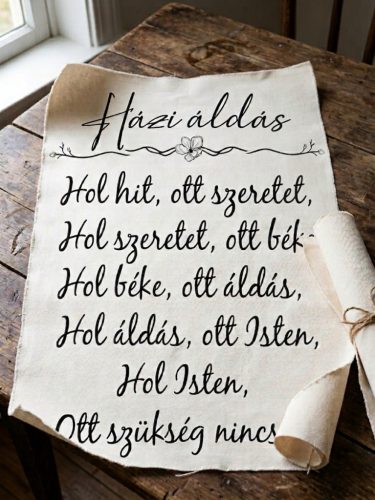 Házi áldás
Hol hit, ott szeretet,
Hol szeretet, ott bék
Hol béke, ott áldás,
Hol áldás, ott Isten,
Hol Isten,
Ott szükség nincs